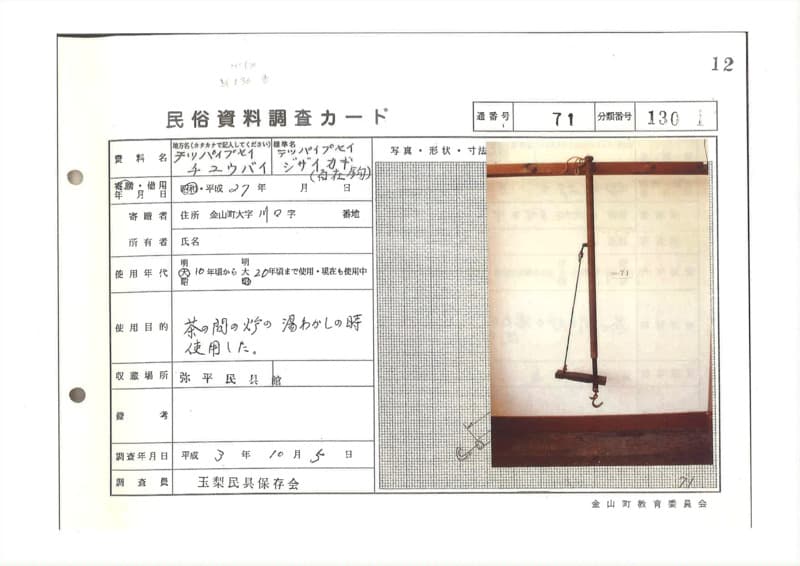 12
民俗資料調査カード
通番号 71 分類番号 130
資料名
地方名(カタカナで記入してください)
テツパイプセイ
チユウバイ
標準名
テツパイプセイ
ジザイカギ
(自在鈎)
写真・形状・寸法
寄贈・使用年月日 昭和・平成 27 年 月 日
寄贈者 住所 金山町大字 川口 字 番地
所有者 氏名
使用年代 明大昭 10年頃から 明大昭 20年頃まで使用・現在も使用中
使用目的 茶の間の炉の湯わかしの時
使用した。
収蔵場所 弥平民具館
備考
調査年月日 平成 3 年 10 月 5 日
調査員 玉梨民具保存会
71
金山町教育委員会